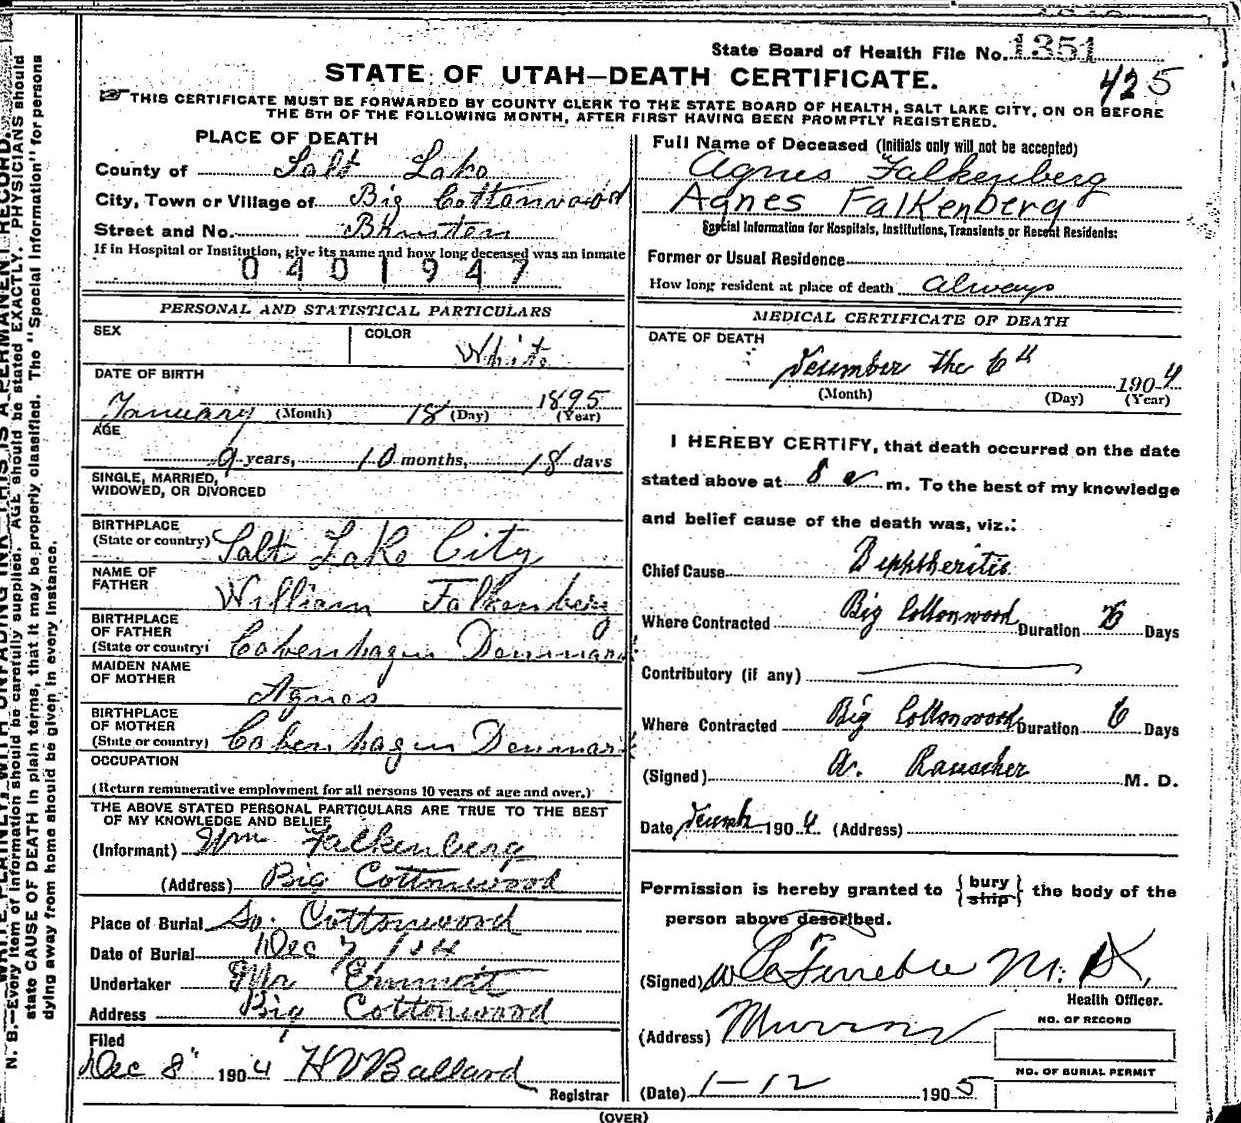 State Board of Health File No. 1351
STATE OF UTAH—DEATH CERTIFICATE.
425
THIS CERTIFICATE MUST BE FORWARDED BY COUNTY CLERK TO THE STATE BOARD OF HEALTH, SALT LAKE CITY, ON OR BEFORE
THE 5TH OF THE FOLLOWING MONTH, AFTER FIRST HAVING BEEN PROMPTLY REGISTERED.
PLACE OF DEATH
County of Salt Lake
City, Town or Village of Big Cottonwood
Street and No.
If in Hospital or Institution, give its name and how long deceased was an inmate
0401947
PERSONAL AND STATISTICAL PARTICULARS
SEX
COLOR White
DATE OF BIRTH
January 18 1895
(Month) (Day) (Year)
AGE
9 years, 10 months, 18 days
SINGLE, MARRIED,
WIDOWED, OR DIVORCED
BIRTHPLACE
(State or country) Salt Lake City
NAME OF
FATHER William Falkenberg
BIRTHPLACE
OF FATHER
(State or country) Cobenhagen Denmark
MAIDEN NAME
OF MOTHER Agnes
BIRTHPLACE
OF MOTHER
(State or country) Cobenhagen Denmark
OCCUPATION
(Return remunerative employment for all persons 10 years of age and over.)
THE ABOVE STATED PERSONAL PARTICULARS ARE TRUE TO THE BEST
OF MY KNOWLEDGE AND BELIEF
(Informant) Wm Falkenberg
(Address) Big Cottonwood
Place of Burial So. Cottonwood
Date of Burial Dec 7
Undertaker Mr
Address Big Cottonwood
Filed
Dec 8 1904 H V Ballard
Registrar
Full Name of Deceased (Initials only will not be accepted)
Agnes Falkenberg
Agnes Falkenberg
Special Information for Hospitals, Institutions, Transients or Recent Residents:
Former or Usual Residence
How long resident at place of death Always
MEDICAL CERTIFICATE OF DEATH
DATE OF DEATH
December the 6th 1904
(Month) (Day) (Year)
I HEREBY CERTIFY, that death occurred on the date
stated above at 8 a m. To the best of my knowledge
and belief cause of the death was, viz.:
Chief Cause Diphtheritis
Where Contracted Big Cottonwood Duration 6 Days
Contributory (if any)
Where Contracted Big Cottonwood Duration 6 Days
(Signed) A. Rauscher M. D.
Date 1904 (Address)
Permission is hereby granted to {bury ship} the body of the
person above described.
(Signed) M. D.
Health Officer.
(Address) Murray
NO. OF RECORD
NO. OF BURIAL PERMIT
(Date) 1-12 1905
(OVER)
N. B.—Every item of information should be carefully supplied. AGE should be stated EXACTLY. PHYSICIANS should
state CAUSE OF DEATH in plain terms, that it may be properly classified. The "Special Information" for persons
dying away from home should be given in every instance.
WRITE PLAINLY, WITH UNFADING INK—THIS IS A PERMANENT RECORD.